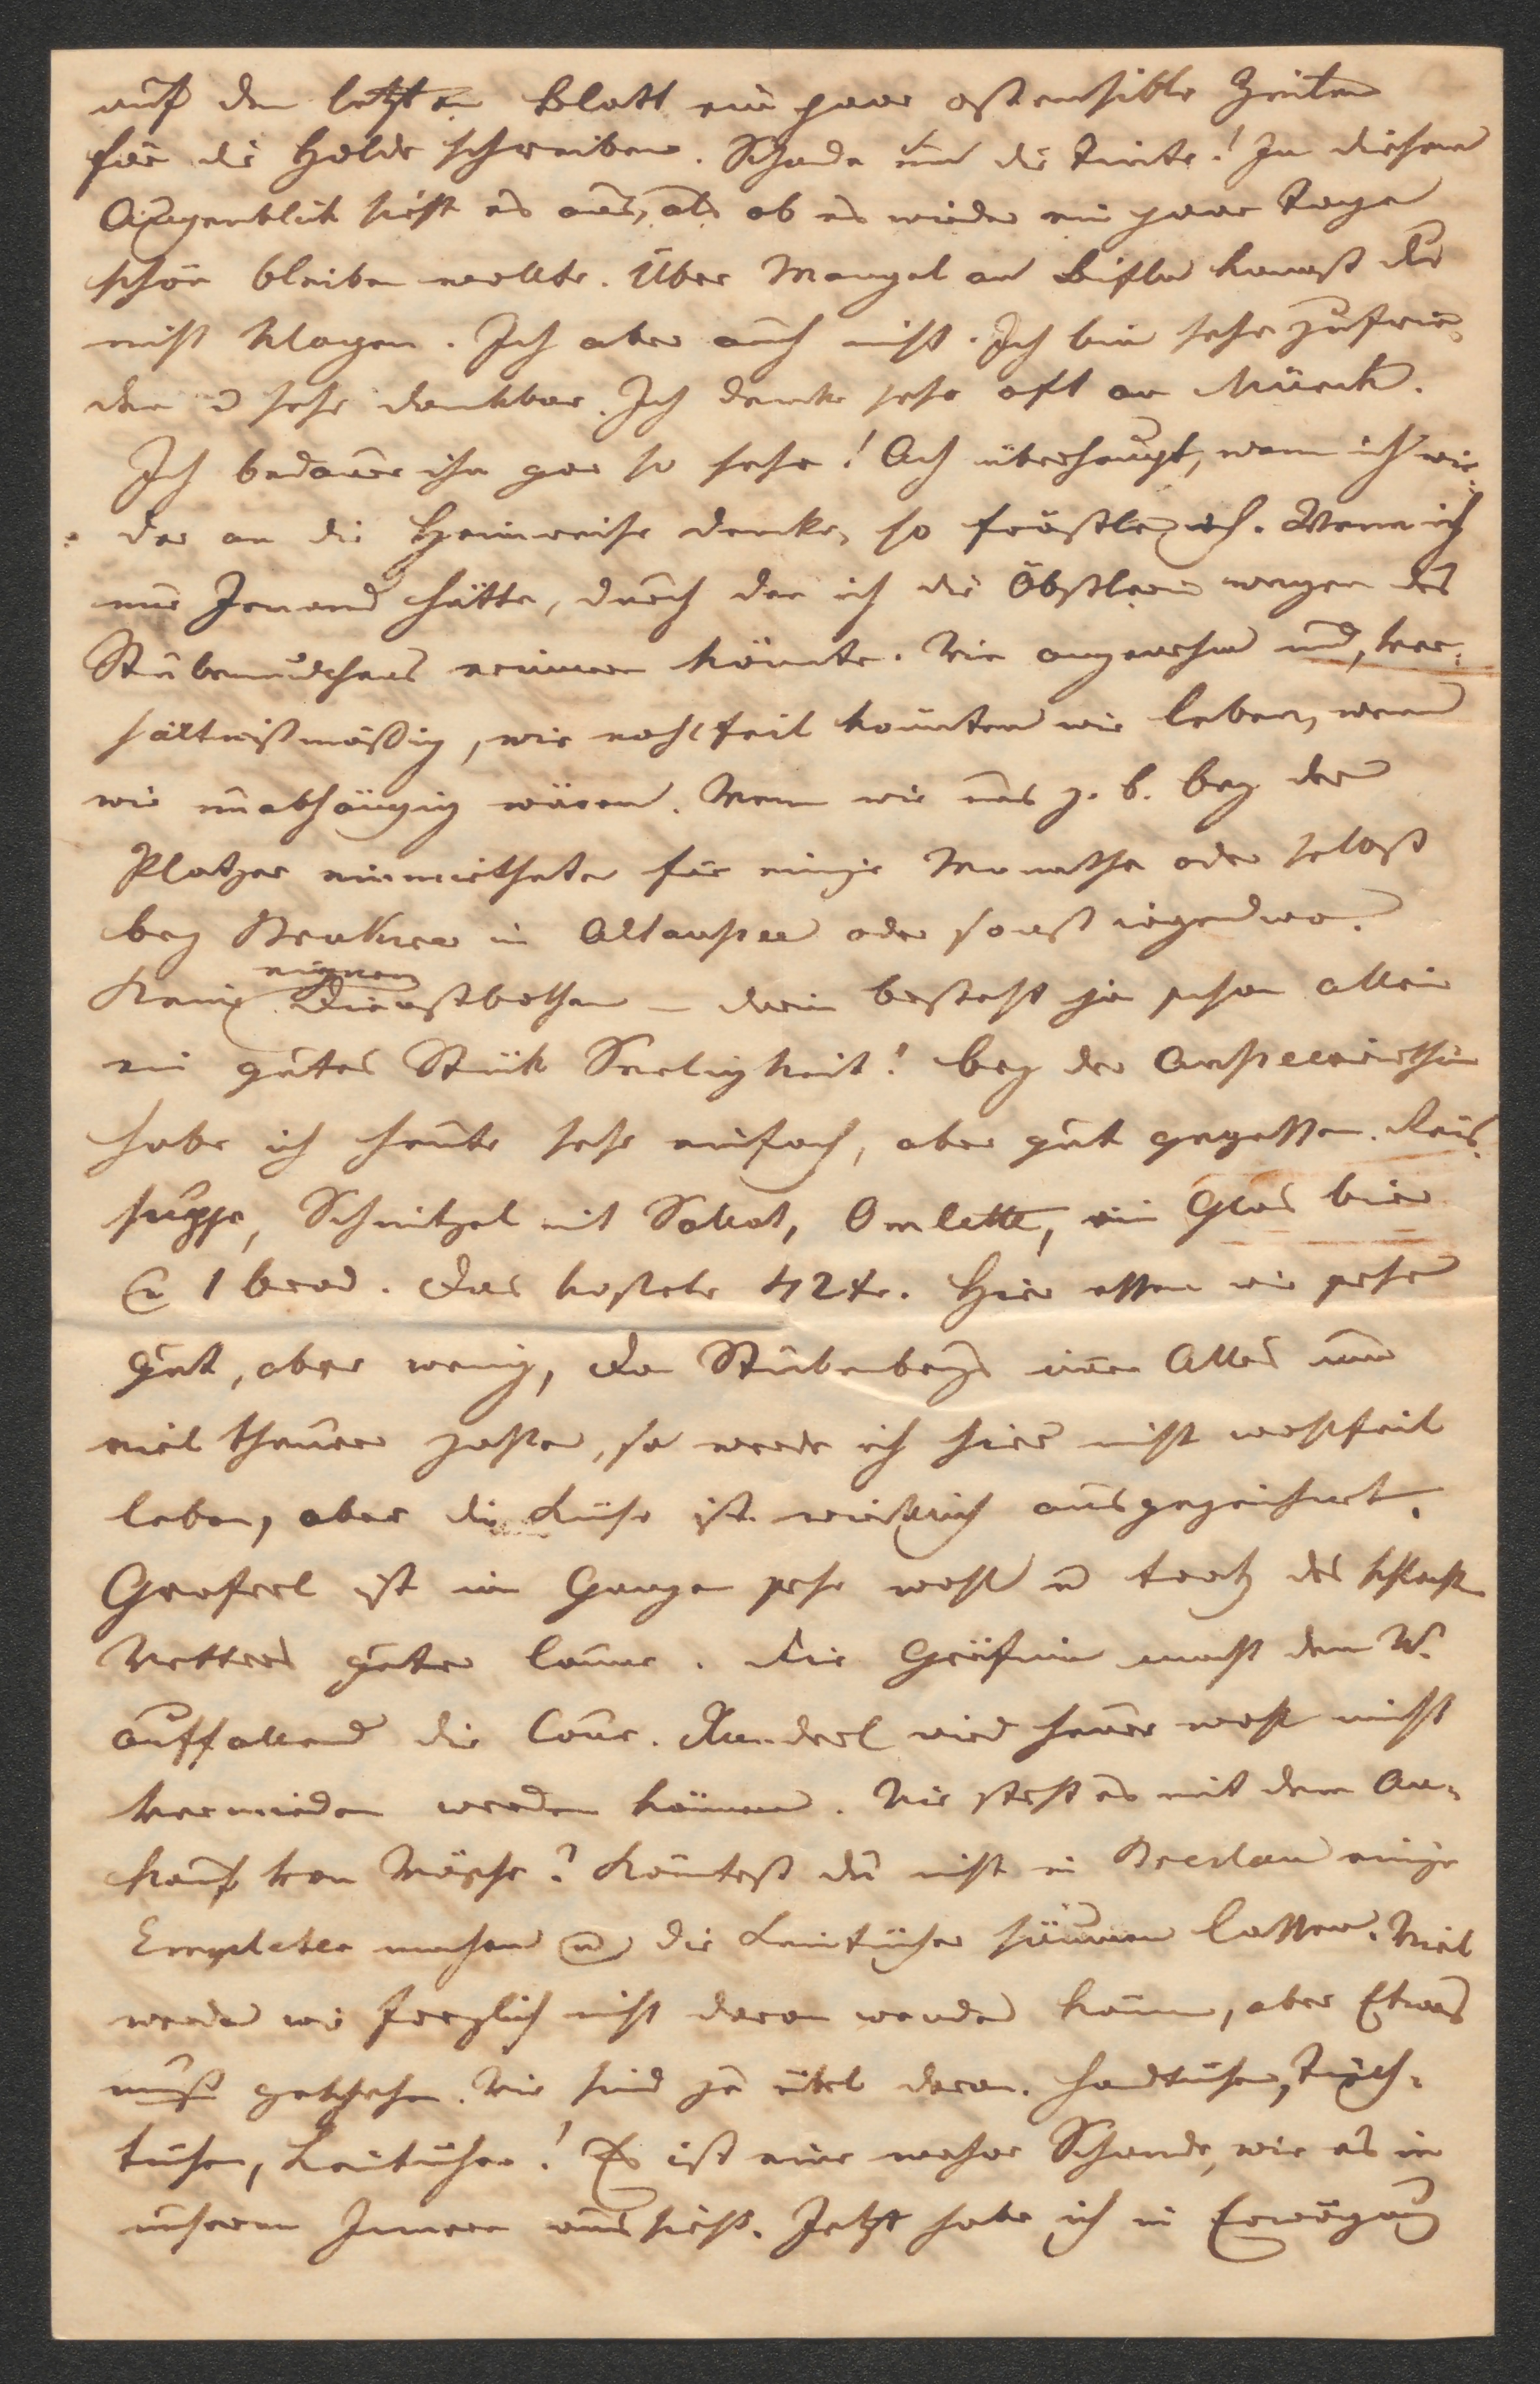 auf dem letzten Blatt ein paar ostensible Zeilen
für die Holde schreiben. Schade um die Tinte! In diesem
Augenblick sieht es aus, als ob es wieder ein paar Tage
schön bleiben wollte. Über Mangel an Briefen kannst du
nicht klagen. Ich aber auch nicht. Ich bin sehr zufrie-
den u sehr dankbar. Ich denke sehr oft an
Ich bedaure ihn gar so sehr! Ach überhaupt, wenn ich wie-
der an die Heimreise denke, so fröstle ich. Wenn ich
nur Jemand hätte, durch den ich die wegen des
Stubenmädchens erinnern könnte. Wie angenehm und, ver-
hältnißmäßig, wie wohlfeil könnten wir leben, wenn
wir unabhängig wären. Wenn wir uns z. B. bey der
Platzer einmietheten für einige Monathe oder selbst
bey in Altaussee oder sonst irgendwo.
Keine eignen Dienstbothen – darin besteht ja schon allein
ein gutes Stück Seeligkeit! Bey der Ausseerwirthin
habe ich heute sehr einfach, aber gut gegessen. Reis-
suppe, Schnitzel mit Salat, Omlette, ein Glas Bier
& 1 Brod. Das kostete 42 kr. Hier essen wir sehr
gut, aber wenig, da Stubenbergs Alles um
viel theurer zahlen, so werde ich hier nicht wohlfeil
leben, aber die Küche ist wirklich ausgezeichnet.
Graferl ist im Ganzen sehr wohl u trotz des schlechten
Wetters guter Laune. Die Gräfinn macht dem W.
auffallend die Cour. wird heuer wohl nicht
vermieden werden können. Wie steht es mit dem An-
kauf von Wäsche? Könntest du nicht in Breslau einige
Empletten machen u die Leintücher säumen lassen. Viel
werden wir freylich nicht daran wenden können, aber Etwas
muß geschehen. Wir sind zu übel daran. Handtücher, Tisch-
tücher, Leintücher! Es ist eine wahre Schande, wie es in
unserem Innern aussieht. Jetzt habe ich in Erwägung